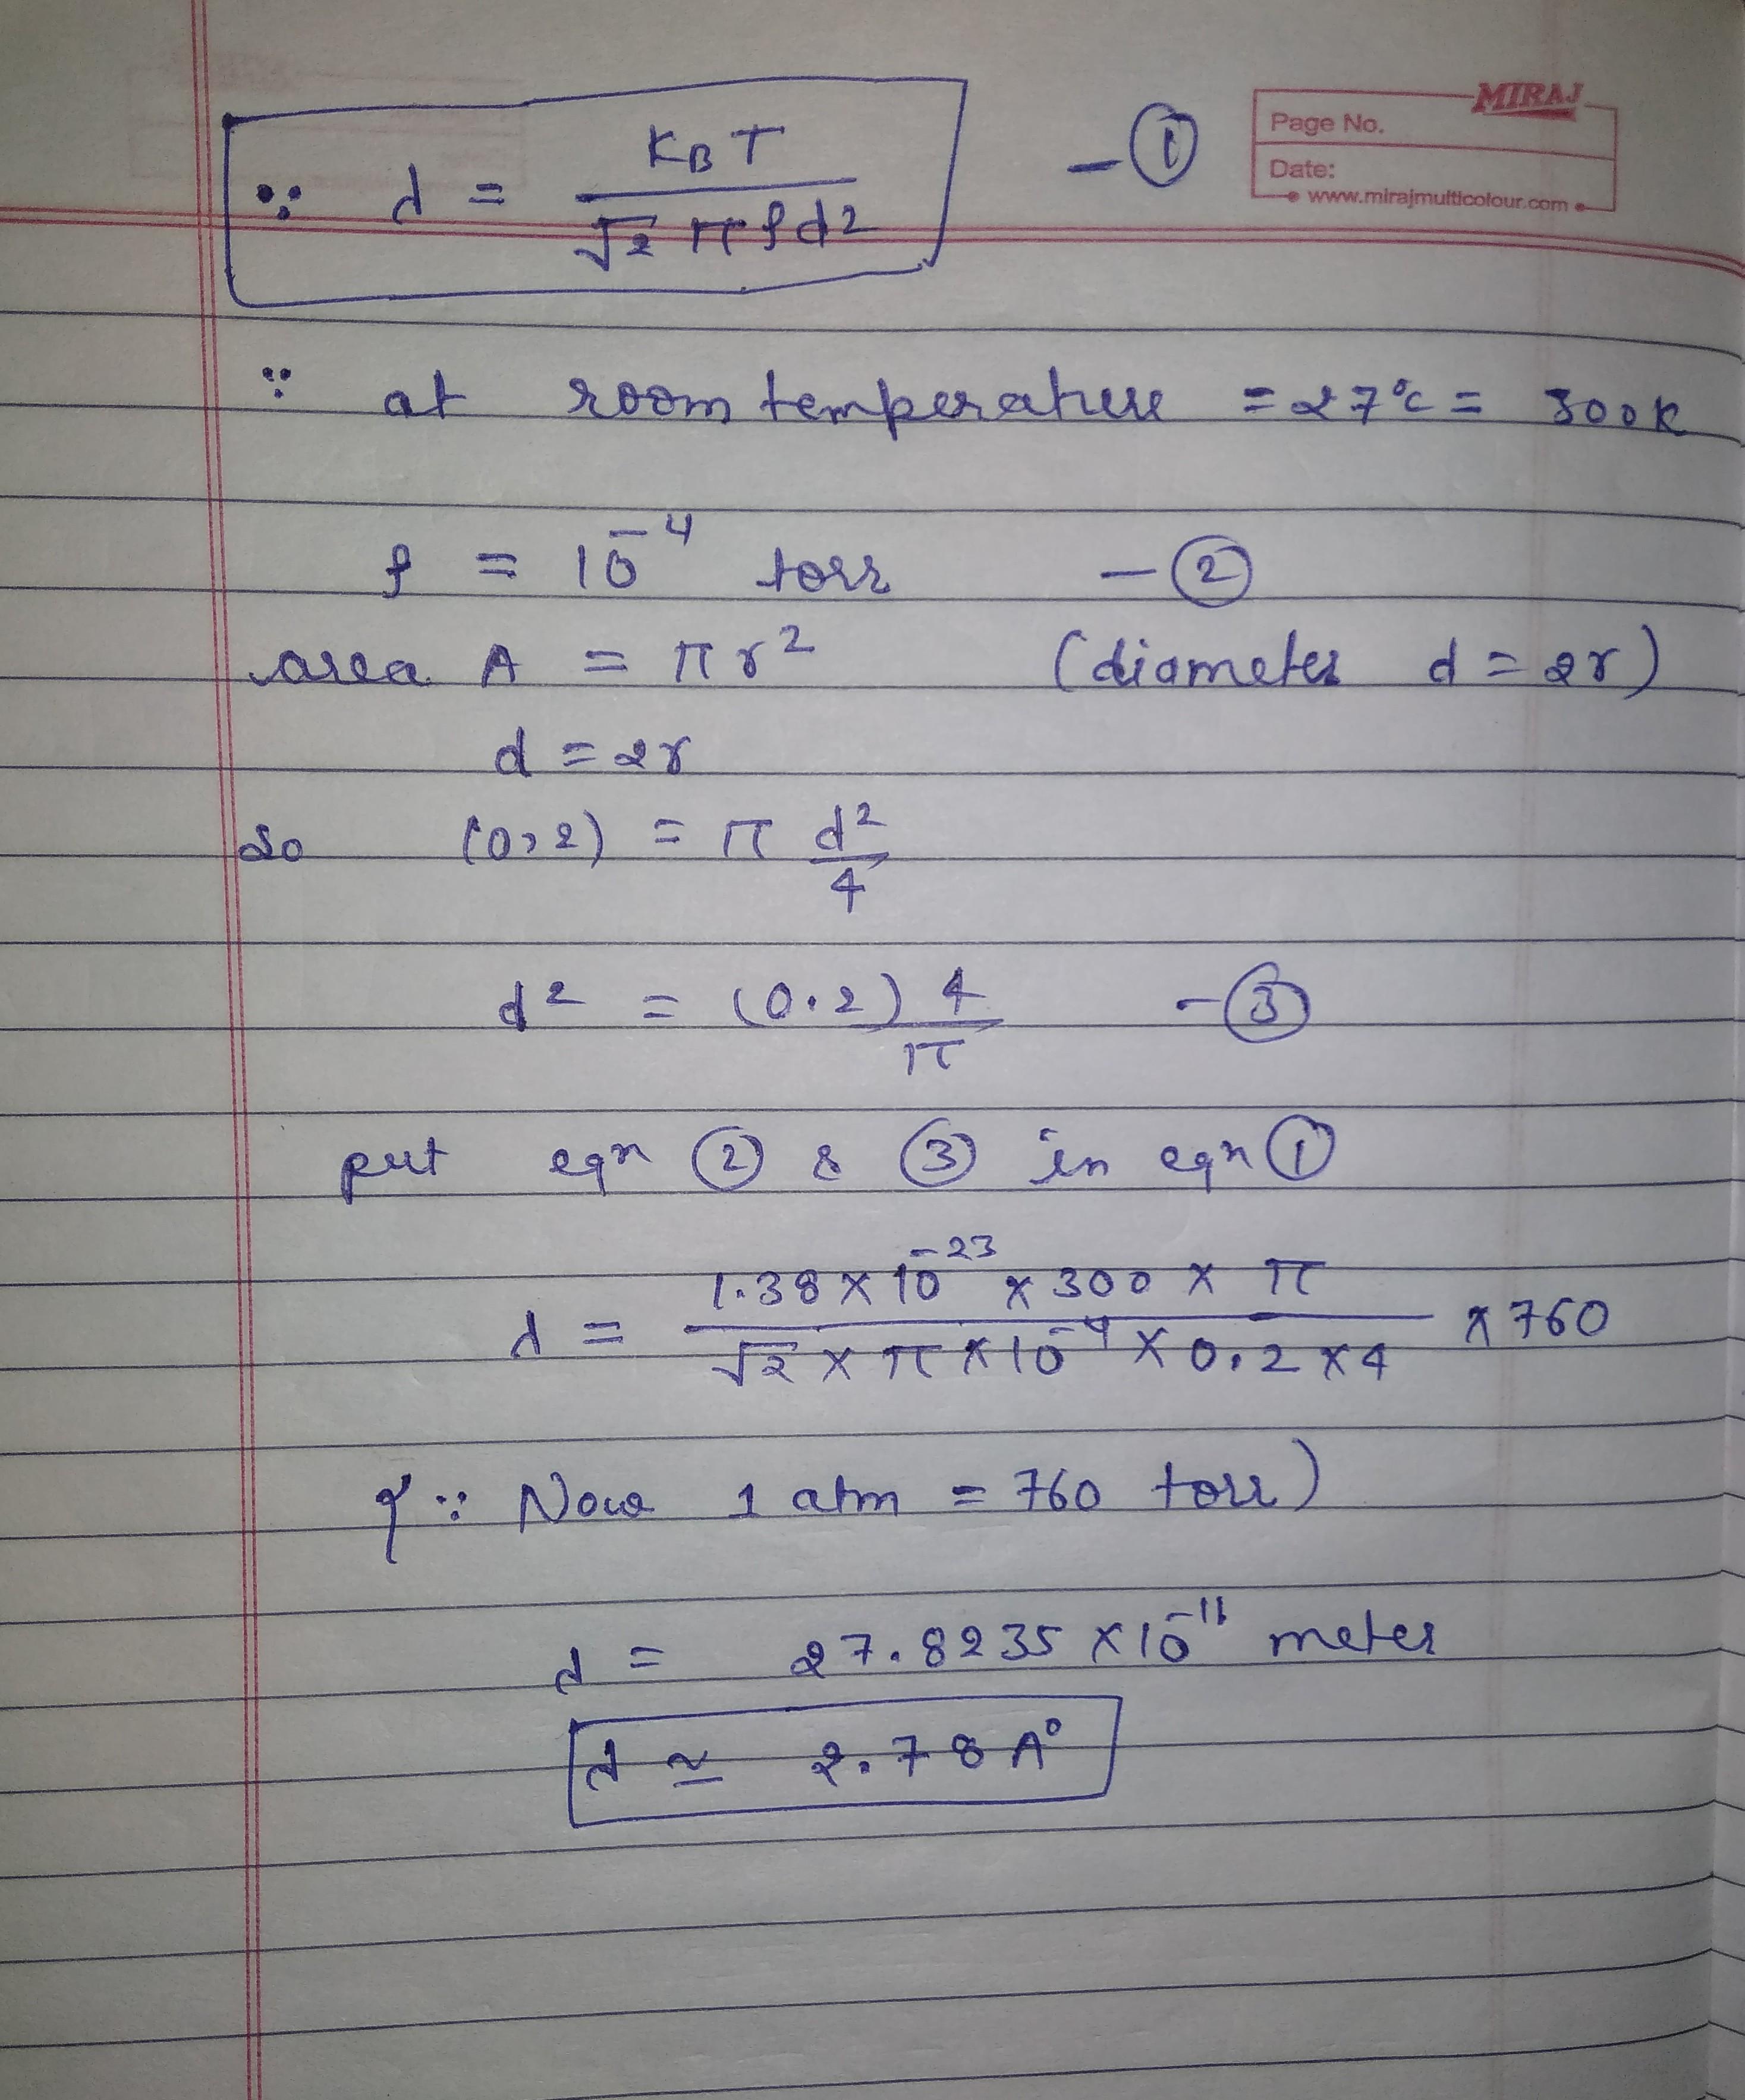 MIRAJ
Page No.
Date:
www.mirajmulticolour.com
∵ λ = K_B T / √2 π P d² - ①
∵ at room temperature = 27°C = 300K
P = 10⁻⁴ torr - ②
area A = πr² (diameter d = 2r)
d = 2r
so (0.2) = π d²/4
d² = (0.2) 4/π - ③
put eqn ② & ③ in eqn ①
λ = 1.38 × 10⁻²³ × 300 × π / √2 × π × 10⁻⁴ × 0.2 × 4 × 760
{∵ Now 1 atm = 760 torr)
λ = 27.8235 × 10⁻¹¹ meter
λ ≃ 2.78 A°